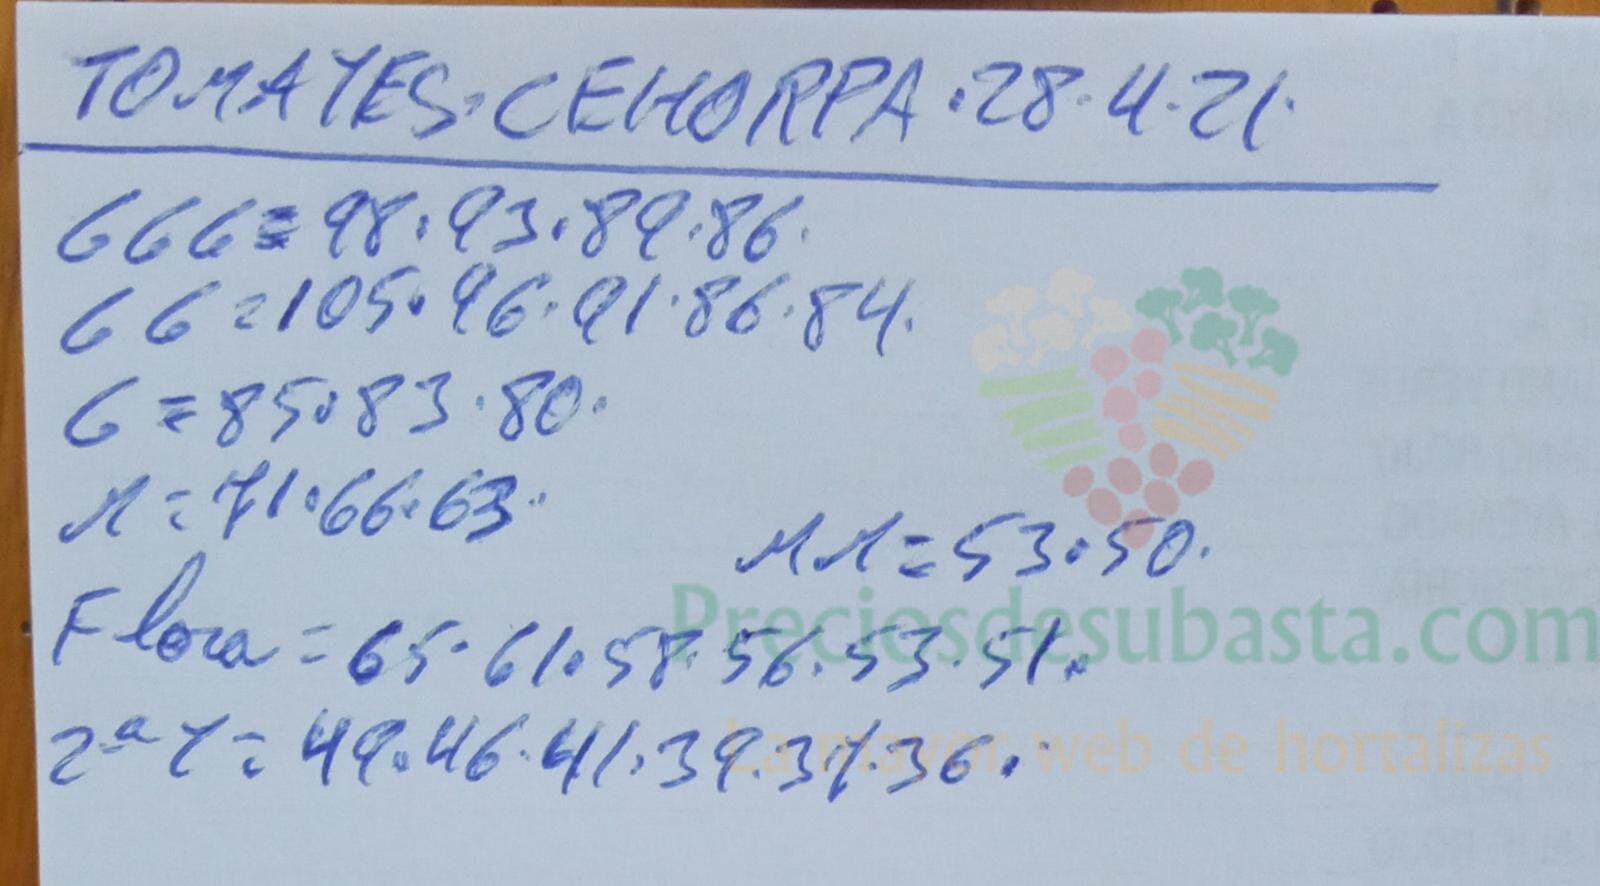 TOMATES. CEHORPA. 28.4.21.
GGG = 98. 93. 89. 86.
GG = 105. 96. 91. 86. 84.
G = 85. 83. 80.
M = 71. 66. 63.
MM = 53. 50.
Preciosdesubasta.com
Flora = 65. 61. 58. 56. 53. 51.
2ª T = 49. 46. 41. 39. 37. 36.
La mayor web de hortalizas